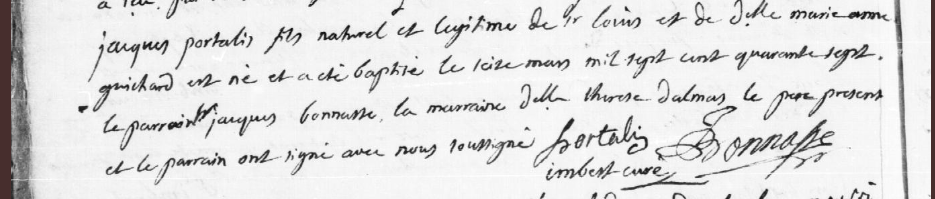 jacques portalis fils naturel et legitime de sr louis et de dlle marie anne
guichard est né et a eté baptisé le seize mars mil sept cent quarante sept.
le parrain sr jacques bonnasse, la marraine dlle therese dalmas le pere present
et le parrain ont signé avec nous soussigné portalis Bonnasse
imbert curé